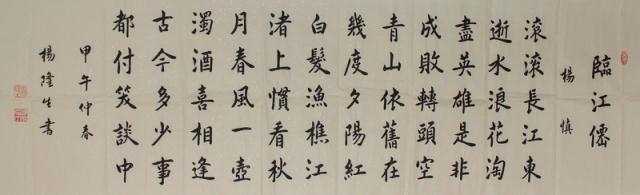 臨江僊
楊慎
滾滾長江東
逝水浪花淘
盡英雄是非
成敗轉頭空
青山依舊在
幾度夕陽紅
白髮漁樵江
渚上慣看秋
月春風一壺
濁酒喜相逢
古今多少事
都付笑談中
甲午仲春
楊隆生書